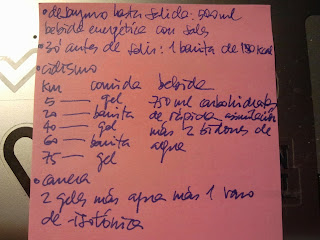 • desayuno hasta salida: 500 ml
bebida energética con sales
• 30' antes de salir: 1 barrita de 180 kcal
• ciclismo
km comida bebida
5 — gel 750 ml carbohidratos
20 — barrita de rápida asimilación
40 — gel más 2 bidones de
60 — barrita agua
75 — gel
• carrera
2 geles más agua más 1 vaso
de isotónica